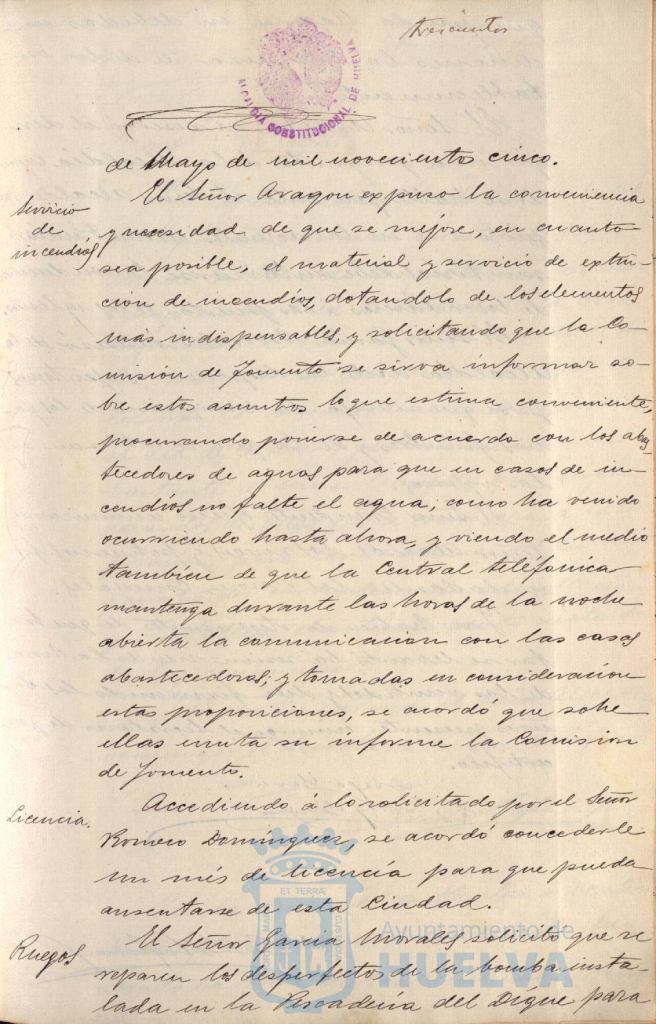 trescientos
ALCALDIA CONSTITUCIONAL DE HUELVA
de Mayo de mil novecientos cinco.
Servicio
de
incendios
El Señor Aragon expuso la conveniencia
y necesidad de que se mejore, en cuanto
sea posible, el material y servicio de extin-
ción de incendios, dotandolo de los elementos
más indispensables, y solicitando que la Co-
misión de Fomento se sirva informar so-
bre estos asuntos lo que estima conveniente,
procurando ponerse de acuerdo con los abas-
tecedores de aguas para que en casos de in-
cendios no falte el agua, como ha venido
ocurriendo hasta ahora, y viendo el medio
tambien de que la Central teléfonica
mantenga durante las horas de la noche
abierta la comunicacion con las casas
abastecedoras; y tomadas en consideracion
estas proposiciones, se acordó que sobre
ellas emita su informe la Comision
de Fomento.
Licencia.
Accediendo á lo solicitado por el Señor
Romero Dominguez, se acordó concederle
un més de licencia para que pueda
ausentarse de esta Ciudad.
Ruegos
El Señor Garcia Morales solicitó que se
reparen los desperfectos de la bomba insta-
lada en la Pescadería del Dique para
Ayuntamiento de
HUELVA
ET TERRÆ